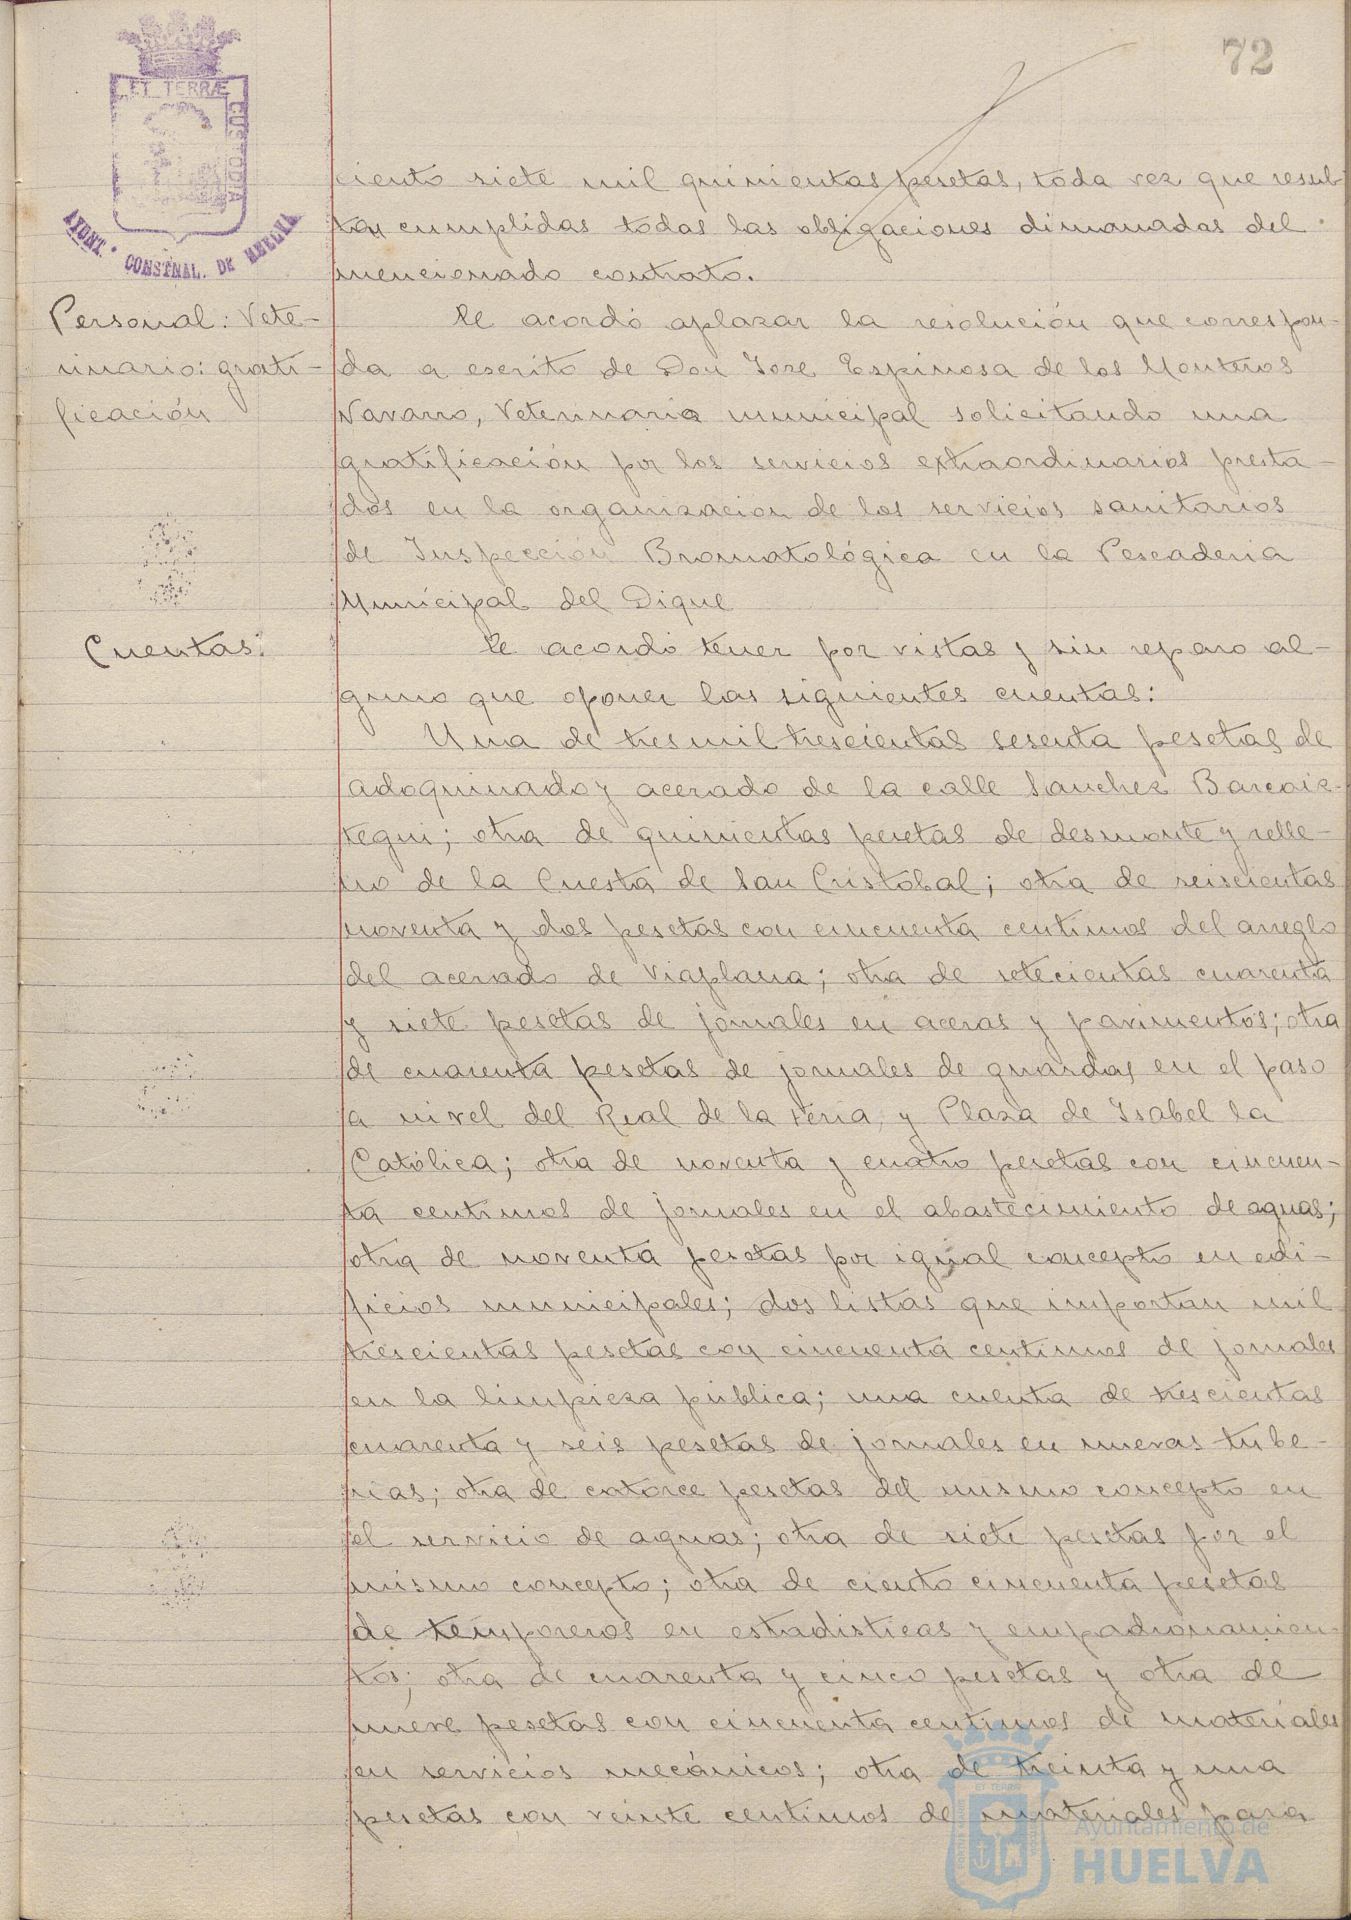 72
ET TERRÆ CUSTODIA
AYUNT. CONSTNAL. DE HUELVA
ciento siete mil quinientas pesetas, toda vez que resul-
tan cumplidas todas las obligaciones dimanadas del
mencionado contrato.
Personal: Vete-
rinario: grati-
ficación
Se acordó aplazar la resolución que correspon-
da a escrito de Don José Espinosa de los Monteros
Navarro, Veterinario municipal solicitando una
gratificación por los servicios extraordinarios presta-
dos en la organización de los servicios sanitarios
de Inspección Bromatológica en la Pescaderia
Municipal del Dique
Cuentas:
Se acordó tener por vistas y sin reparo al-
guno que oponer las siguientes cuentas:
Una de tres mil trescientas sesenta pesetas de
adoquinado y acerado de la calle Sanchez Barcaiz-
tegui; otra de quinientas pesetas de desmonte y relle-
no de la Cuesta de San Cristóbal; otra de seiscientas
noventa y dos pesetas con cincuenta centimos del arreglo
del acerado de Viaplana; otra de setecientas cuarenta
y siete pesetas de jornales en aceras y pavimentos; otra
de cuarenta pesetas de jornales de guardas en el paso
a nivel del Real de la Feria, y Plaza de Isabel la
Católica; otra de noventa y cuatro pesetas con cincuen-
ta centimos de jornales en el abastecimiento de aguas;
otra de noventa pesetas por igual concepto en edi-
ficios municipales; dos listas que importan mil
trescientas pesetas con cincuenta centimos de jornales
en la limpieza pública; una cuenta de trescientas
cuarenta y seis pesetas de jornales en nuevas tube-
rias; otra de catorce pesetas del mismo concepto en
el servicio de aguas; otra de siete pesetas por el
mismo concepto; otra de ciento cincuenta pesetas
de temporeros en estadisticas y empadronamien-
tos; otra de cuarenta y cinco pesetas y otra de
nueve pesetas con cincuenta centimos de materiales
en servicios mecánicos; otra de treinta y una
pesetas con veinte centimos de materiales para
Ayuntamiento de
HUELVA